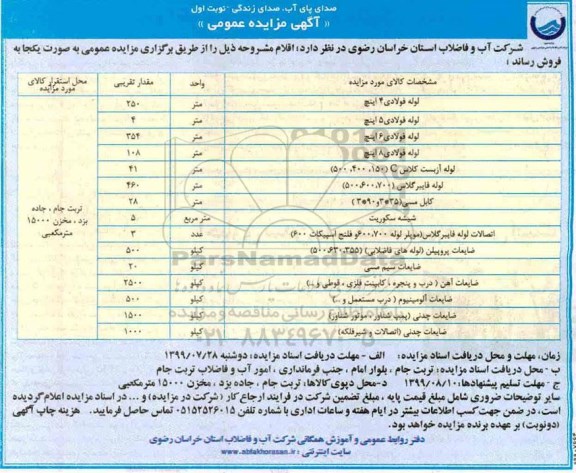 صدای پای آب، صدای زندگی - نوبت اول
« آگهی مزایده عمومی »
شرکت آب و فاضلاب استان خراسان رضوی در نظر دارد؛ اقلام مشروحه ذیل را از طریق برگزاری مزایده عمومی به صورت یکجا به
فروش رساند ؛
مشخصات کالای مورد مزایده واحد مقدار تقریبی محل استقرار کالای مورد مزایده
لوله فولادی ۴ اینچ متر ۲۵۰
لوله فولادی ۵ اینچ متر ۴
لوله فولادی ۶ اینچ متر ۳۵۴
لوله فولادی ۸ اینچ متر ۱۰۸
لوله آزبست کلاس C (۱۵۰، ۴۰۰، ۵۰۰) متر ۴۱
لوله فایبرگلاس (۵۰۰،۶۰۰،۷۰۰) متر ۴۶۰
کابل مسی (۳۵*۳و۹۰*۳) متر ۲۸
شیشه سکوریت متر مربع ۵
اتصالات لوله فایبرگلاس(موپلر لوله ۶۰۰،۷۰۰و فلنج اسپیکات ۶۰۰) عدد ۳
ضایعات پروپیلن (لوله های فاضلابی) (۵۰۰،۶۳۰،۳۵۵) کیلو ۵۰۰
ضایعات سیم مسی کیلو ۲۰
ضایعات آهن ( درب و پنجره ، کابینت فلزی ، قوطی و ...) کیلو ۲۵۰۰
ضایعات آلومینیوم ( درب مستعمل و ...) کیلو ۵۰۰
ضایعات چدنی (پمپ شناور ، موتور شناور) کیلو ۱۵۰۰
ضایعات چدنی (اتصالات و شیرفلکه) کیلو ۱۰۰۰
تربت جام ، جاده
یزد ، مخزن ۱۵۰۰۰
مترمکعبی
ParsNamadData
۰۲۱-۸۸۳۴۹۶۷۰
زمان، مهلت و محل دریافت اسناد مزایده: الف - مهلت دریافت اسناد مزایده: دوشنبه ۱۳۹۹/۰۷/۲۸
ب - محل دریافت اسناد مزایده: تربت جام ، بلوار امام ، جنب فرمانداری ، امور آب و فاضلاب تربت جام
ج - مهلت تسلیم پیشنهادها: ۱۳۹۹/۰۸/۱۰ د- محل دپوی کالاها: تربت جام ، جاده یزد ، مخزن ۱۵۰۰۰ مترمکعبی
سایر توضیحات ضروری شامل مبلغ قیمت پایه ، مبلغ تضمین شرکت در فرایند ارجاع کار ( شرکت در مزایده) و ... در اسناد مزایده اعلام گردیده
است، در ضمن جهت کسب اطلاعات بیشتر در ایام هفته و ساعات اداری با شماره تلفن ۰۵۱۵۲۵۲۶۰۱۵ تماس حاصل فرمایید. هزینه چاپ آگهی
(دونوبت) بر عهده برنده مزایده خواهد بود.
دفتر روابط عمومی و آموزش همگانی شرکت آب و فاضلاب استان خراسان رضوی
سایت اینترنتی : www.abfakhorasan.ir